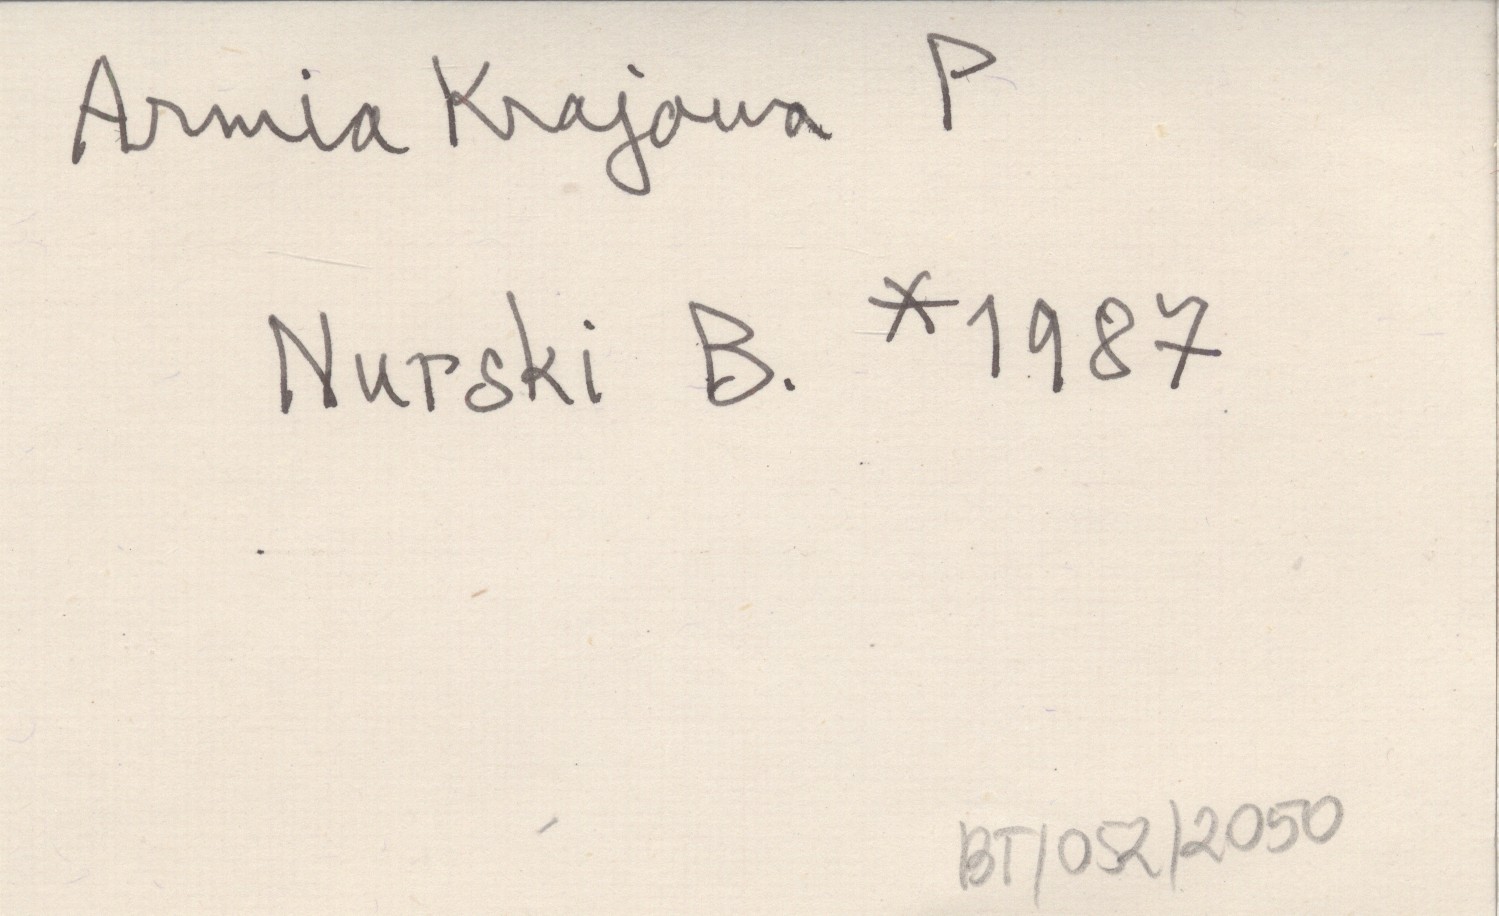 Armia Krajowa P
Nurski B. *1987
BT/052/2050